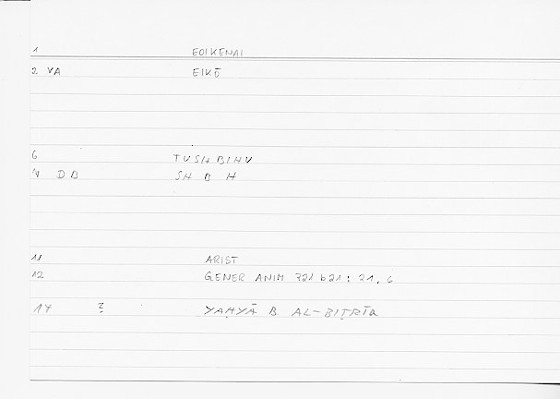 1 EOIKENAI
2 VA EIKŌ
6 TUSHBIHU
7 DB SH B H
11 ARIST
12 GENER ANIM 721 b21 : 21.6
14 ? YAḤYĀ B AL-BIṬRĪQ